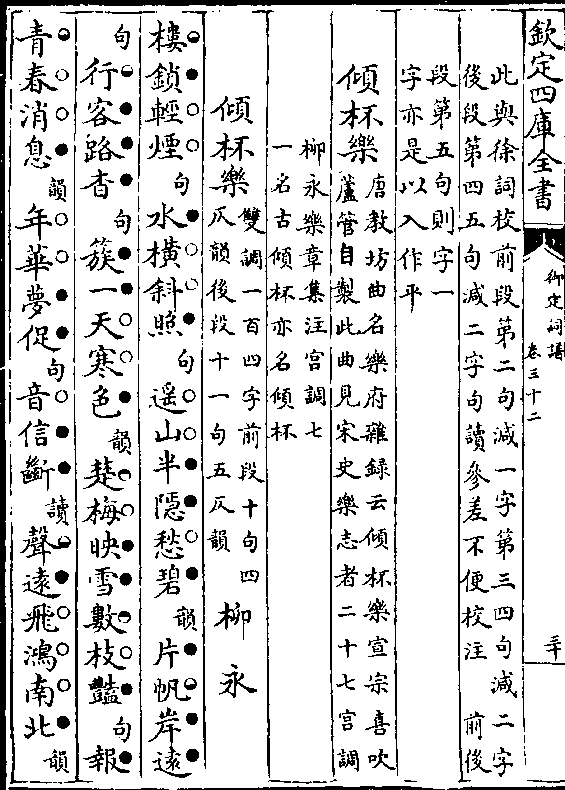 欽定四庫全書
御定詞譜
卷三十二
三十
此與徐詞校前段第二句減一字第三四句減二字
後段第四五句減二字句讀參差不便校注　前後
段第五句則字一
字亦是以入作平
傾杯樂
唐教坊曲名樂府雜録云傾杯樂宣宗喜吹
蘆管自製此曲見宋史樂志者二十七宮調
柳永樂章集注宮調七
一名古傾杯亦名傾杯
傾杯樂
雙調一百四字前段十句四
仄韻後段十一句五仄韻
柳永
樓鎖輕煙句水橫斜照句遥山半隱愁碧韻片帆岸遠
句行客路杳句簇一天寒色韻楚梅映雪數枝豔句報
青春消息韻年華夢促句音信斷讀聲遠飛鴻南北韻